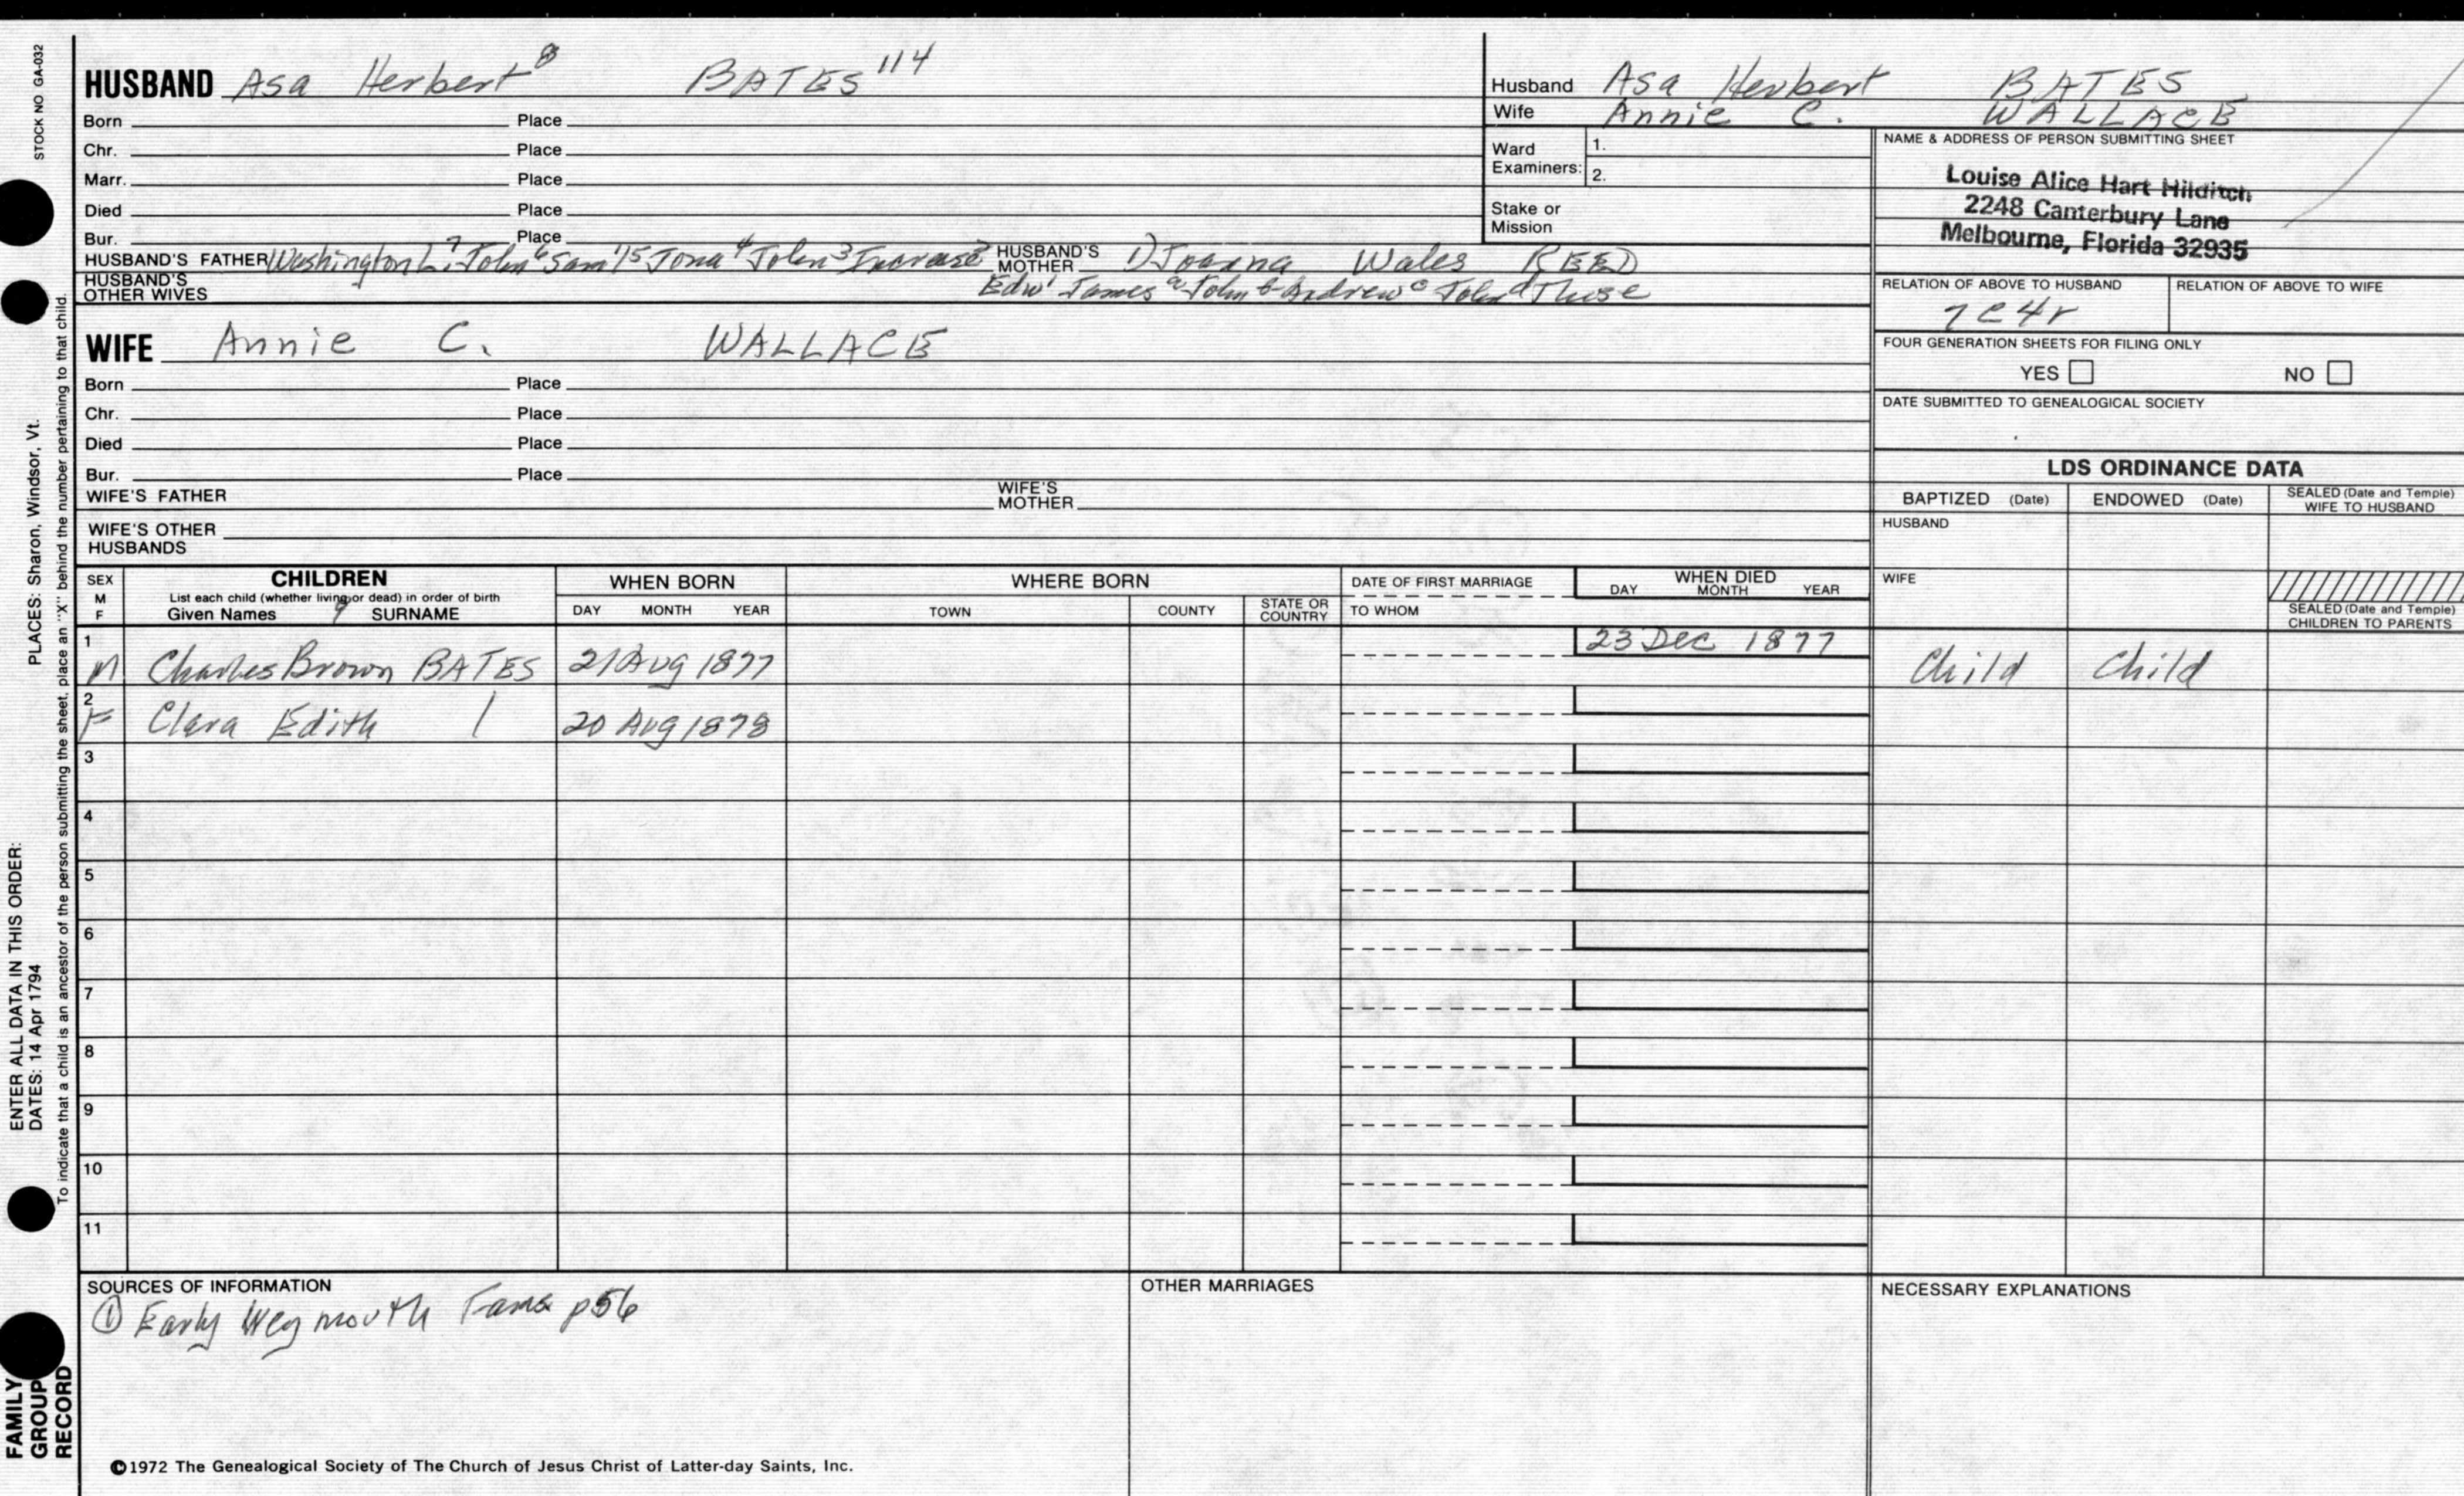 STOCK NO GA-032
HUSBAND Asa Herbert 8 BATES 114
Born Place
Chr. Place
Marr. Place
Died Place
Bur. Place
HUSBAND'S FATHER Washington L. 7 John 6 Sam'l 5 Jona 4 John 3 Increase 2 HUSBAND'S MOTHER 1) Joanna Wales REED
HUSBAND'S OTHER WIVES Edw 1 James a John b Andrew c John d
Husband Asa Herbert BATES
Wife Annie C. WALLACE
Ward Examiners: 1.
2.
Stake or Mission
NAME & ADDRESS OF PERSON SUBMITTING SHEET
Louise Alice Hart Hilditch
2248 Canterbury Lane
Melbourne, Florida 32935
RELATION OF ABOVE TO HUSBAND RELATION OF ABOVE TO WIFE
7C4r
FOUR GENERATION SHEETS FOR FILING ONLY
YES NO
DATE SUBMITTED TO GENEALOGICAL SOCIETY
WIFE Annie C. WALLACE
Born Place
Chr. Place
Died Place
Bur. Place
WIFE'S FATHER WIFE'S MOTHER
WIFE'S OTHER HUSBANDS
LDS ORDINANCE DATA
BAPTIZED (Date) ENDOWED (Date) SEALED (Date and Temple) WIFE TO HUSBAND
HUSBAND
WIFE
SEALED (Date and Temple) CHILDREN TO PARENTS
SEX M F CHILDREN WHEN BORN WHERE BORN DATE OF FIRST MARRIAGE WHEN DIED
List each child (whether living or dead) in order of birth
Given Names 9 SURNAME DAY MONTH YEAR TOWN COUNTY STATE OR COUNTRY TO WHOM DAY MONTH YEAR
1 M Charles Brown BATES 21 Aug 1877 23 Dec 1877 Child Child
2 F Clara Edith / 20 Aug 1878
3
4
5
6
7
8
9
10
11
SOURCES OF INFORMATION
① Early Weymouth Fams p56
OTHER MARRIAGES
NECESSARY EXPLANATIONS
©1972 The Genealogical Society of The Church of Jesus Christ of Latter-day Saints, Inc.
ENTER ALL DATA IN THIS ORDER:
DATES: 14 Apr 1794 PLACES: Sharon, Windsor, Vt.
To indicate that a child is an ancestor of the person submitting the sheet, place an "X" behind the number pertaining to that child.
FAMILY
GROUP
RECORD